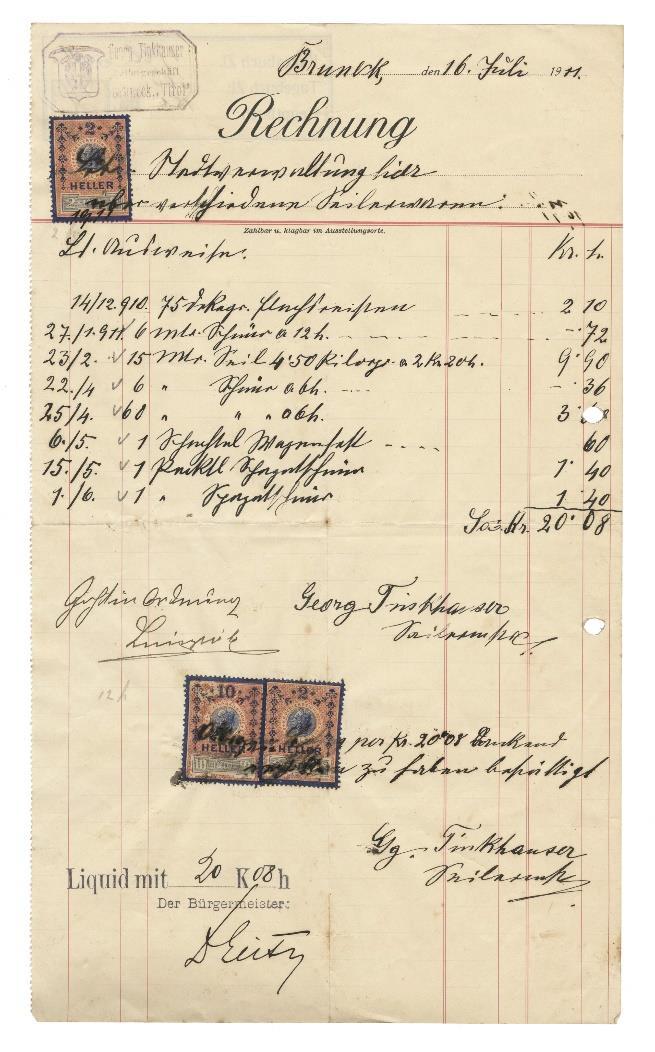 Georg Tinkhauser
Seilergeschäft
Bruneck, Tirol
Bruneck, den 16. Juli 1911.
Rechnung
2
HELLER
Stadtverwaltung hier
über verschiedene Seilerwaren
Zahlbar u. klagbar im Ausstellungsorte.
Lt. Ausweise. Kr. h.
14/12.910. 75 Dekagr. 2 10
27/1.911 6 Mtr. Schnür a 12 h. 72
23/2. 15 Mtr. Seil 4·50 Kilogr. a 2 Kr 20 h. 9·90
22./4 6 " Schnür a 6 h. 36
25/4. 60 " " a 6 h. 3
6./5. 1 Schachtel Wagenfett 60
15./5. 1 Packtl Spagatschnür 1· 40
1./6. 1 " Spagatschnür 1 40
Sa. Kr. 20·08
Geht in Ordnung
Georg Tinkhauser
Seilermstr.
12 h
10 2
HELLER HELLER
per Kr. 20·08 dankend
zu haben bestätigt
Gg. Tinkhauser
Seilermstr.
Liquid mit 20 K 08 h
Der Bürgermeister: